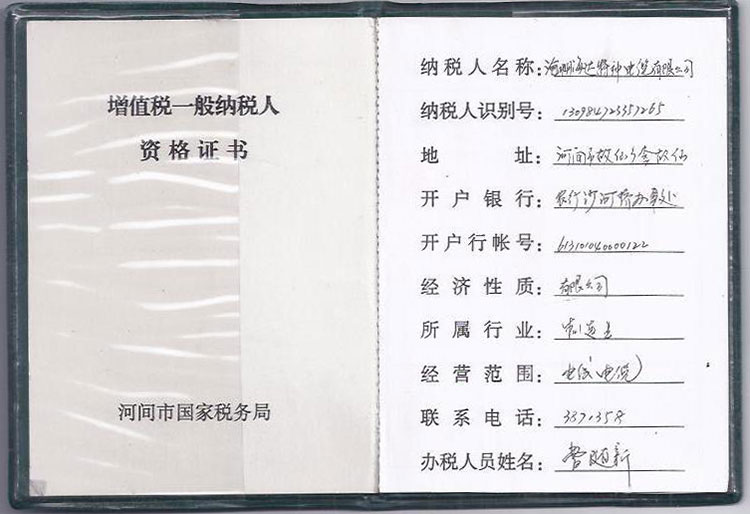 增值税一般纳税人
资格证书
河间市国家税务局
纳税人名称：沧州海达特种电缆有限公司
纳税人识别号：130984723357265
地址：河间市故仙乡会故仙
开户银行：农行沙河桥办事处
开户行帐号：613101040000122
经济性质：有限公司
所属行业：制造业
经营范围：电线（电缆）
联系电话：3871358
办税人员姓名：随新